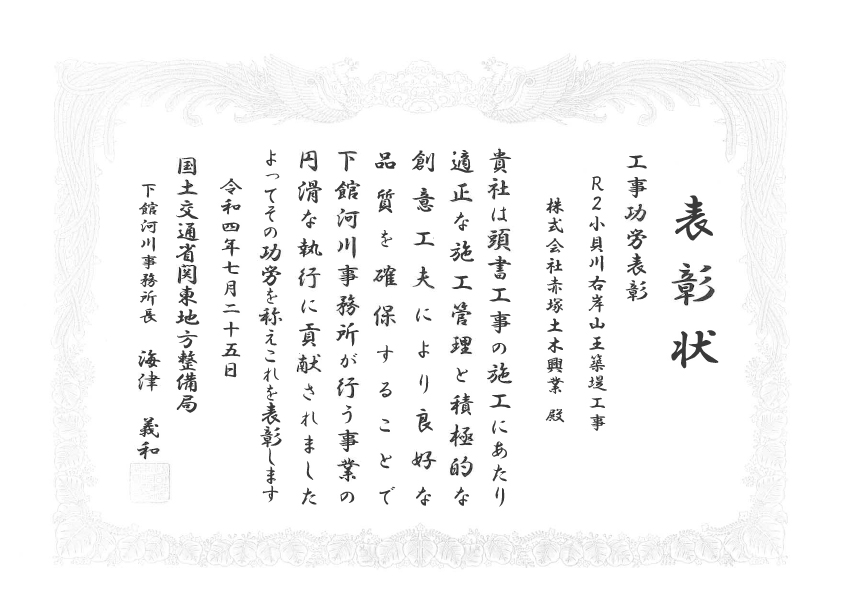 表彰状
工事功労表彰
R2小貝川右岸山王築堤工事
株式会社赤塚土木興業 殿
貴社は頭書工事の施工にあたり
適正な施工管理と積極的な
創意工夫により良好な
品質を確保することで
下館河川事務所が行う事業の
円滑な執行に貢献されました
よってその功労を称えこれを表彰します
令和四年七月二十五日
国土交通省関東地方整備局
下館河川事務所長 海津 義和